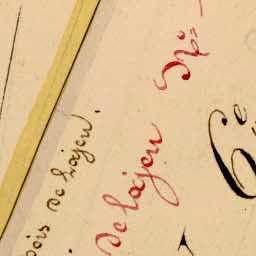 bois de Lajeu.
de Lajeu N°:
6e